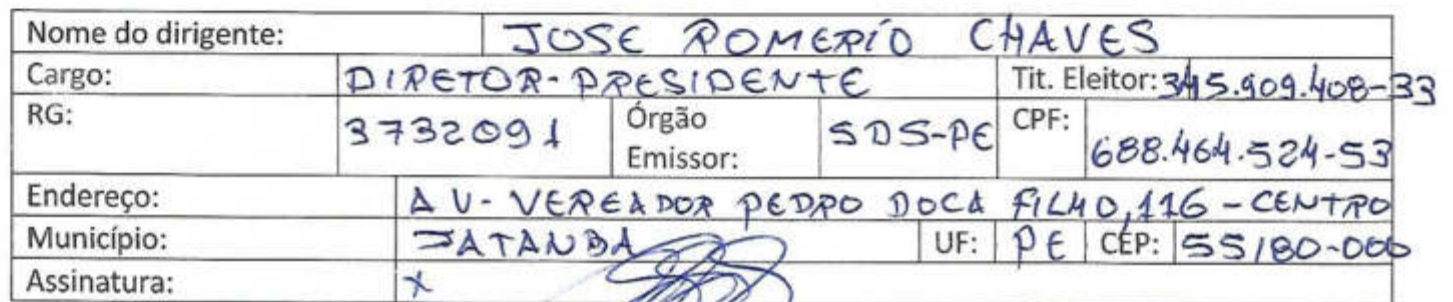 Nome do dirigente: JOSE ROMERÍO CHAVES
Cargo: DIRETOR-PRESIDENTE Tit. Eleitor: 345.909.408-33
RG: 3732091 Órgão Emissor: SDS-PE CPF: 688.464.524-53
Endereço: AV- VEREADOR PEDRO DOCA FILHO, 116 - CENTRO
Município: JATAÚBA UF: PE CEP: 55180-000
Assinatura: X